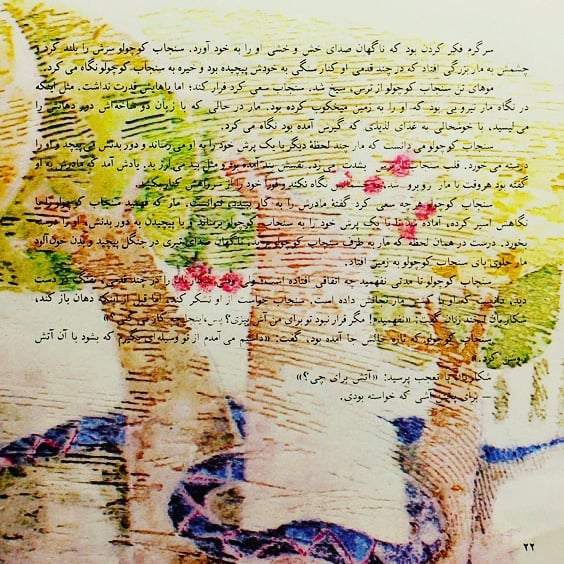 سرگرم فکر کردن بود که ناگهان صدای خش و خشی او را به خود آورد. سنجاب کوچولو سرش را بلند کرد و
چشمش به مار بزرگی افتاد که در چند قدمی او کنار سنگی به خودش پیچیده بود و خیره به سنجاب کوچولو نگاه می کرد.
موهای تن سنجاب کوچولو از ترس، سیخ شد. سنجاب سعی کرد فرار کند؛ اما پاهایش قدرت نداشت. مثل اینکه
در نگاه مار نیرویی بود که او را به زمین میخکوب کرده بود. مار در حالی که با زبان دو شاخه‌اش دور دهانش را
می لیسید، با خوشحالی به غذای لذیذی که گیرش آمده بود نگاه می کرد.
سنجاب کوچولو می دانست که مار چند لحظهٔ دیگر با یک پرش خود را به او می رساند و دور بدنش می پیچد و او را
درسته می خورد. قلب سنجاب بشدت می زد. نفسش بند آمده بود و مثل بید می لرزید. یادش آمد که مادرش به او
گفته بود هر وقت با مار روبرو شد نگاه نکند و فوراً خود را از سر راهش کنار بکشد.
سنجاب کوچولو هر چه سعی کرد گفتهٔ مادرش را به کار ببندد نتوانست. مار که فهمید سنجاب کوچولو را با
نگاهش اسیر کرده، آماده شد تا با یک پرش خود را به سنجاب کوچولو برساند و با پیچیدن به دور بدنش، او را
بخورد. درست در همان لحظه که مار به طرف سنجاب کوچولو پرید، ناگهان صدای تیری در جنگل پیچید و بدن خون‌آلود
مار جلوی پای سنجاب کوچولو به زمین افتاد.
سنجاب کوچولو تا مدتی نفهمید چه اتفاقی افتاده است؛ ولی وقتی شکاربان را در چند قدمی، تفنگ به دست
دید، دانست که او با کشتن مار نجاتش داده است. سنجاب خواست از او تشکر کند، اما قبل از اینکه دهان باز کند،
شکاربان خنده زنان گفت: «نفهمیدم! مگر قرار نبود تو برای من آتش بریزی؟ پس اینجا چکار می کنی؟»
سنجاب کوچولو که تازه حالش جا آمده بود، گفت: «داشتم می آمدم از تو وسیله‌ای بگیرم که بشود با آن آتش
روشن کرد.»
شکاربان با تعجب پرسید: «آتش برای چی؟»
— برای آتشی که خواسته بودی.
۲۲